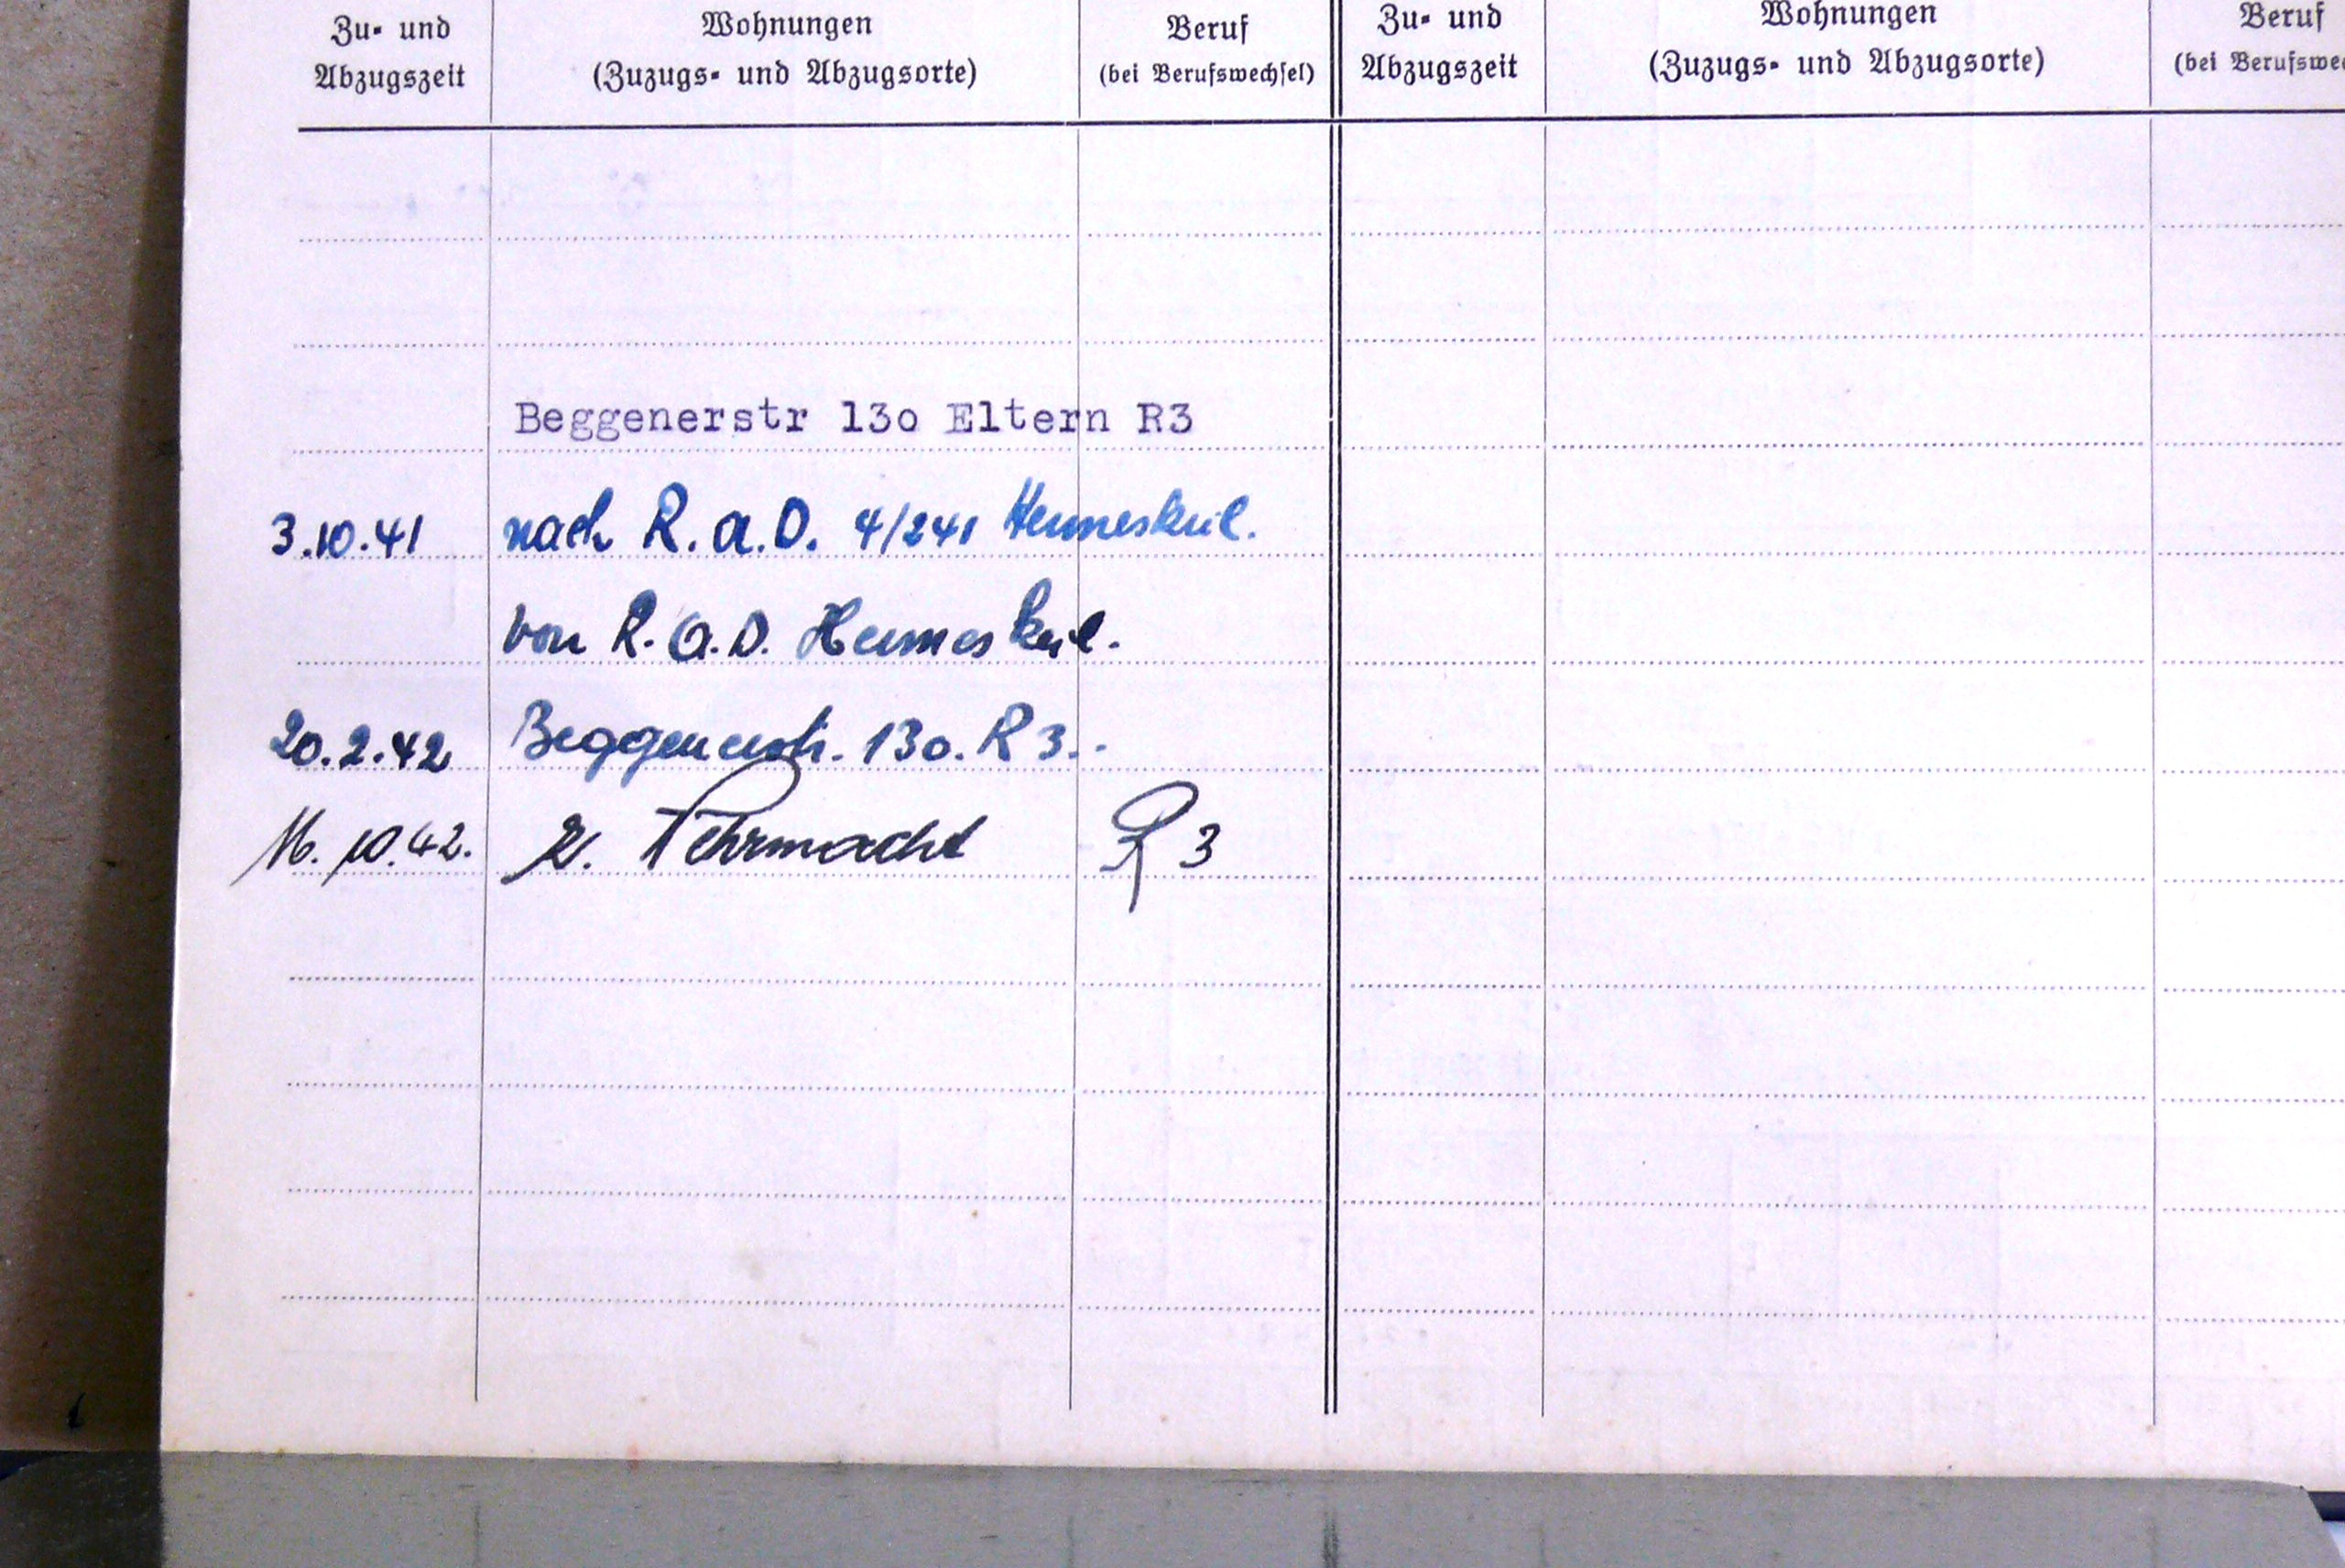 Zu- und Abzugszeit
Wohnungen (Zuzugs- und Abzugsorte)
Beruf (bei Berufswechsel)
Zu- und Abzugszeit
Wohnungen (Zuzugs- und Abzugsorte)
Beruf (bei Berufswe
Beggenerstr 130 Eltern R3
3.10.41 nach R.a.D. 4/241 Hermeskeil.
von R.a.D. Hermeskeil.
20.2.42 Beggenerstr. 130. R3.
16.10.42. z. Wehrmacht R3